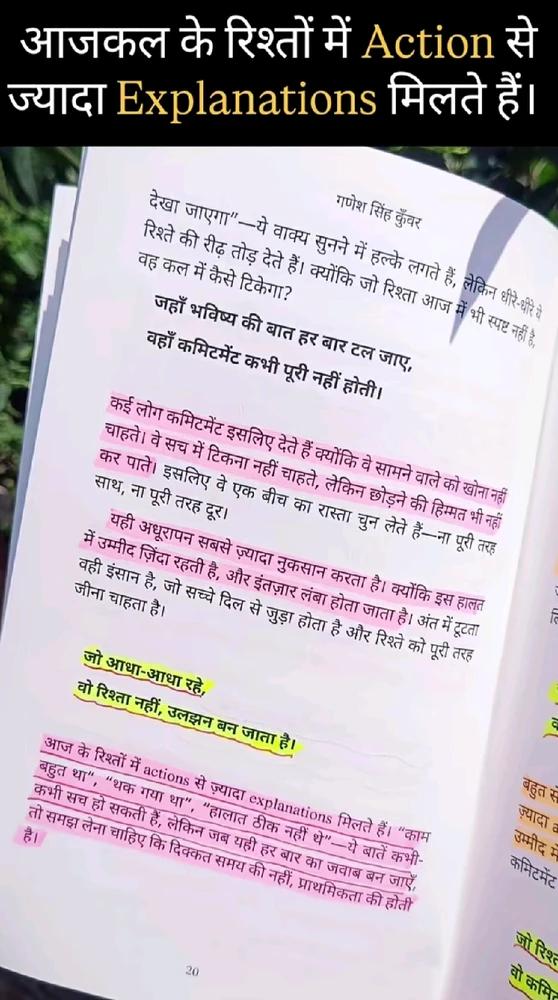 आजकल के रिश्तों में Action से
ज्यादा Explanations मिलते हैं।
गणेश सिंह कुँवर
देखा जाएगा”—ये वाक्य सुनने में हल्के लगते हैं, लेकिन धीरे-धीरे ये
रिश्ते की रीढ़ तोड़ देते हैं। क्योंकि जो रिश्ता आज में भी स्पष्ट नहीं है,
वह कल में कैसे टिकेगा?
जहाँ भविष्य की बात हर बार टल जाए,
वहाँ कमिटमेंट कभी पूरी नहीं होती।
कई लोग कमिटमेंट इसलिए देते हैं क्योंकि वे सामने वाले को खोना नहीं
चाहते। वे सच में टिकना नहीं चाहते, लेकिन छोड़ने की हिम्मत भी नहीं
कर पाते। इसलिए वे एक बीच का रास्ता चुन लेते हैं—ना पूरी तरह
साथ, ना पूरी तरह दूर।
यही अधूरापन सबसे ज़्यादा नुकसान करता है। क्योंकि इस हालत
में उम्मीद ज़िंदा रहती है, और इंतज़ार लंबा होता जाता है। अंत में टूटता
वही इंसान है, जो सच्चे दिल से जुड़ा होता है और रिश्ते को पूरी तरह
जीना चाहता है।
जो आधा-आधा रहे,
वो रिश्ता नहीं, उलझन बन जाता है।
आज के रिश्तों में actions से ज़्यादा explanations मिलते हैं। “काम
बहुत था”, “थक गया था”, “हालात ठीक नहीं थे”—ये बातें कभी-
कभी सच हो सकती हैं, लेकिन जब यही हर बार का जवाब बन जाएँ,
तो समझ लेना चाहिए कि दिक्कत समय की नहीं, प्राथमिकता की होती
है।
20
बहुत से
ज़्यादा
उम्मीद में
कमिटमेंट
जो रिश्
वो कमि